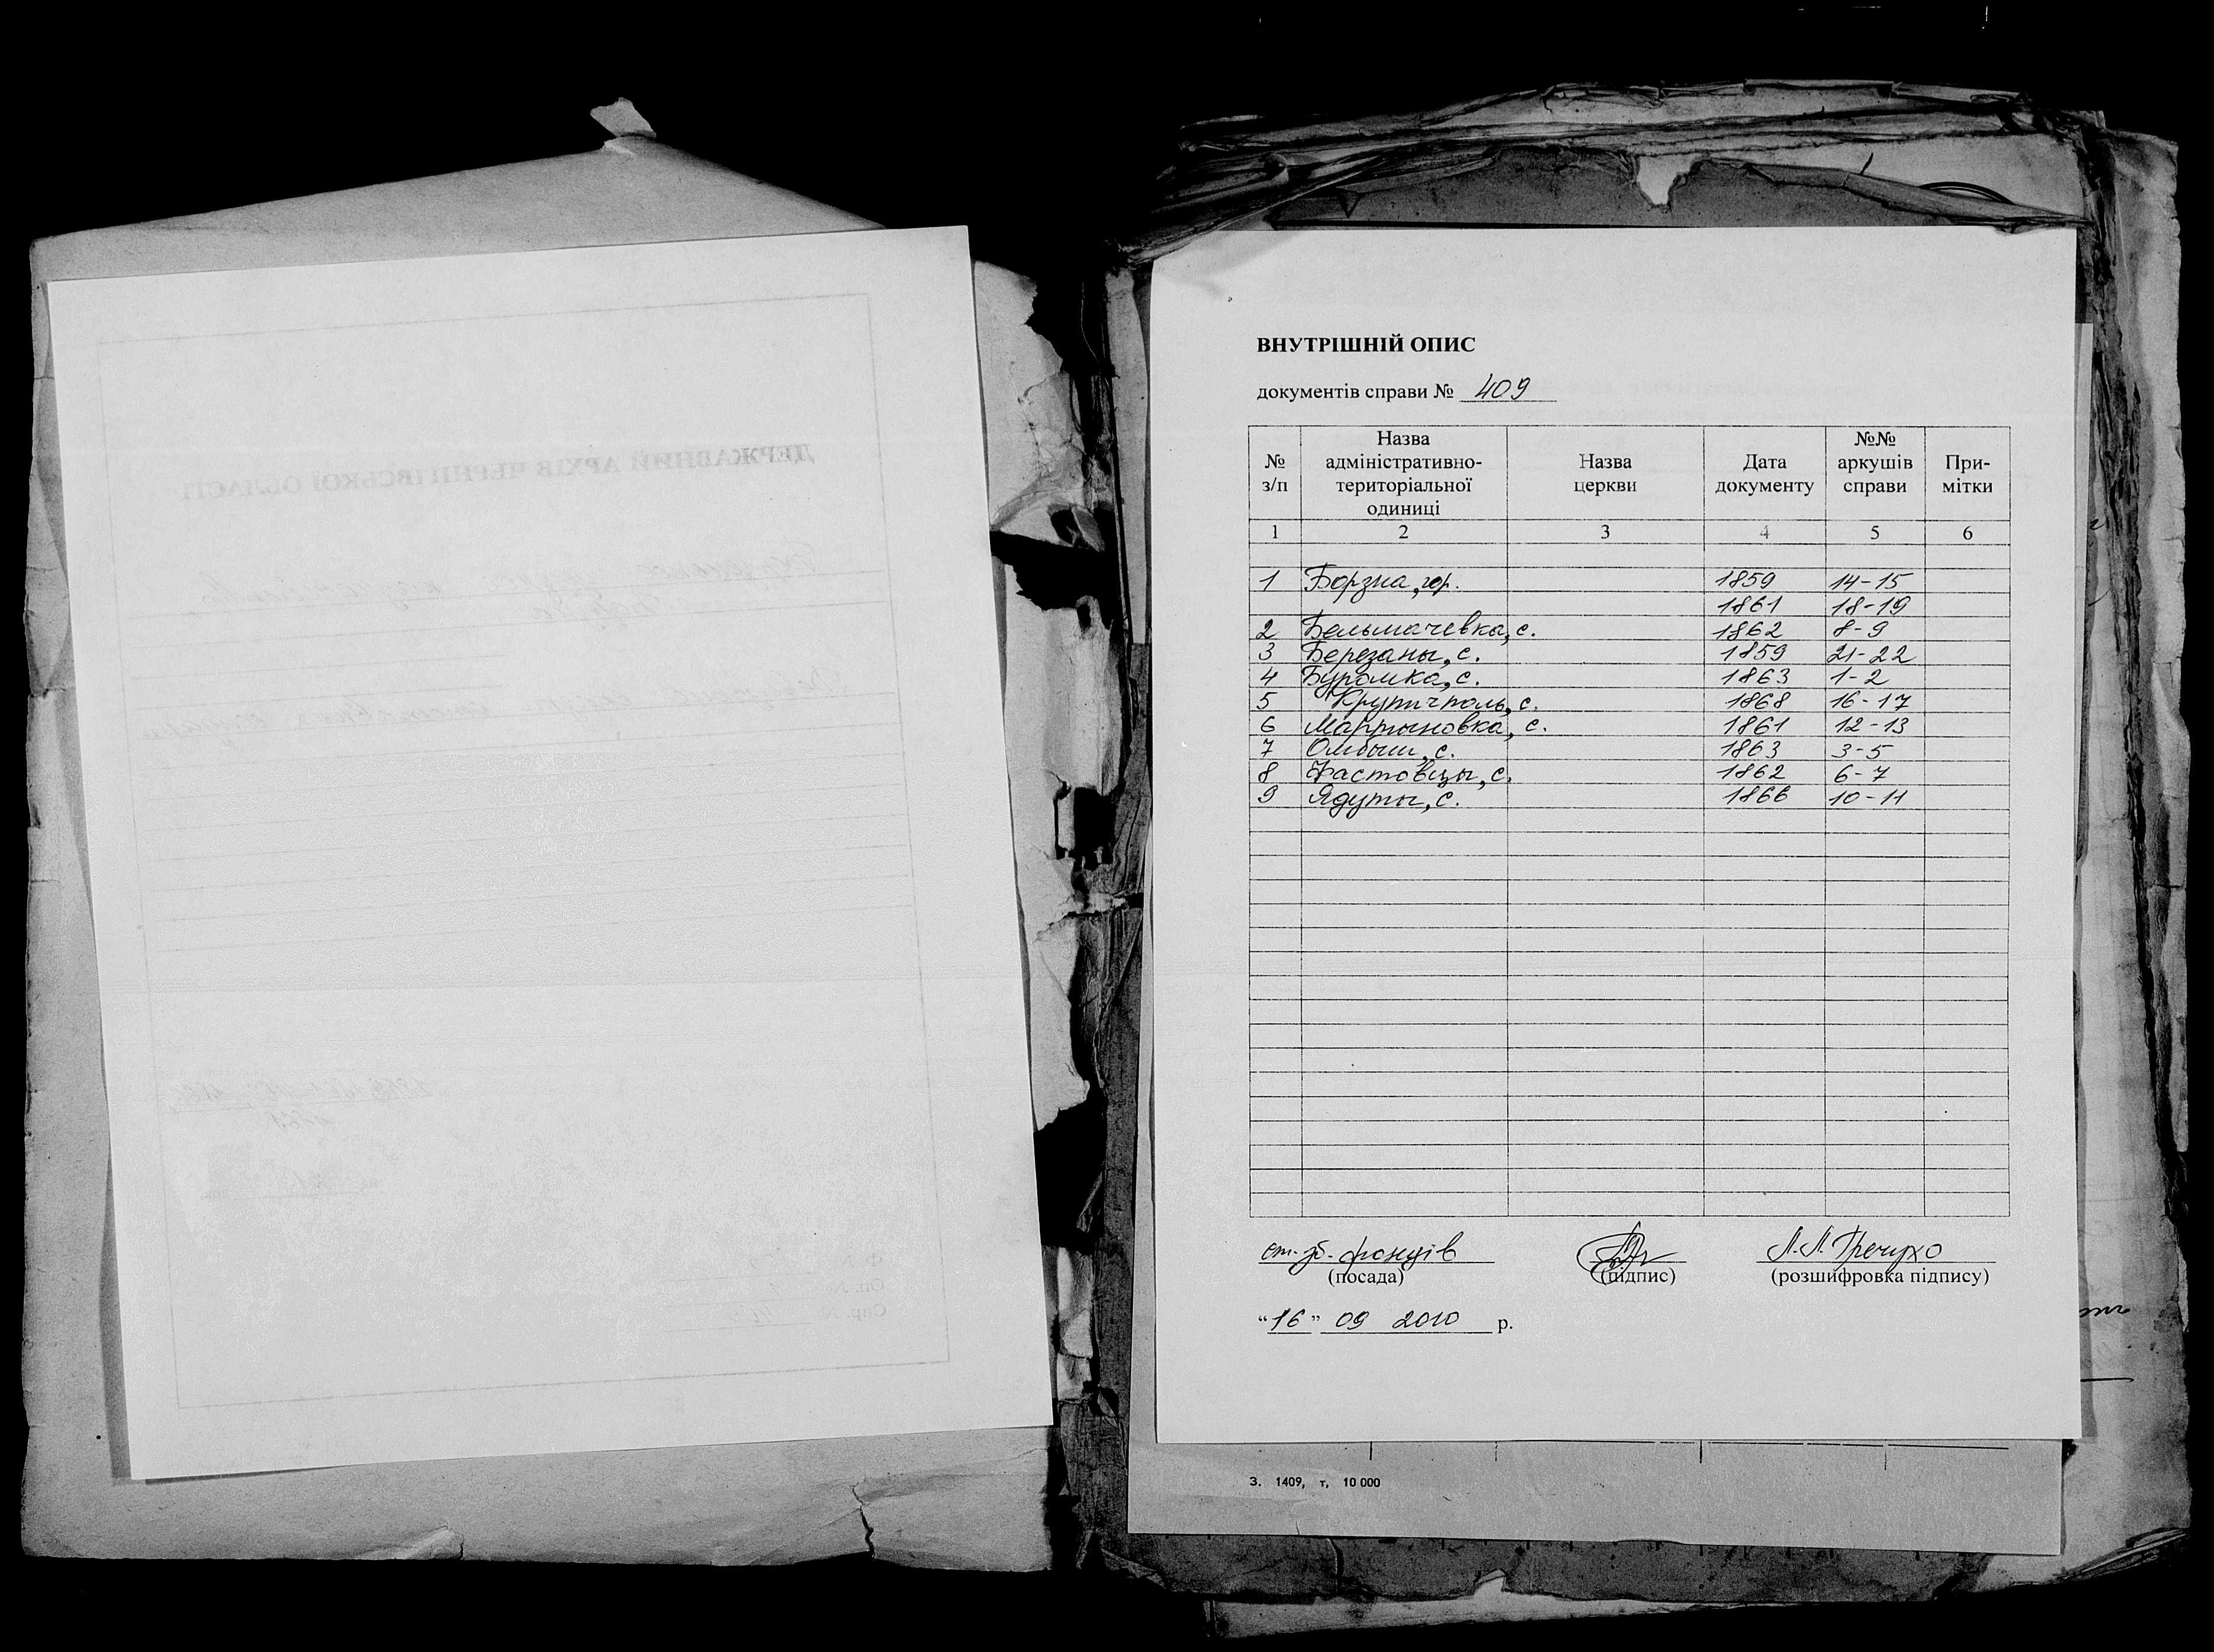 ВНУТРІШНІЙ ОПИС
документів справи № 409
№ з/п | Назва адміністративно-територіальної одиниці | Назва церкви | Дата документу | №№ аркушів справи | При-мітки
1 | 2 | 3 | 4 | 5 | 6
1 Борзна, гор. 1859 14-15
1861 18-19
2 Бельмачевка, с. 1862 8-9
3 Березаны, с. 1859 21-22
4 Буромка, с. 1863 1-2
5 Крупичполь, с. 1868 16-17
6 Мартыновка, с. 1861 12-13
7 Омбыш, с. 1863 3-5
8 Фастовцы, с. 1862 6-7
9 Ядуты, с. 1866 10-11
ст. зб. фондів
(посада) (підпис) (розшифровка підпису)
"16" 09 2010 р.
З. 1409, т, 10 000
ДЕРЖАВНИЙ АРХІВ ЧЕРНІГІВСЬКОЇ ОБЛАСТІ
Ф. №
Оп. №
Спр. №